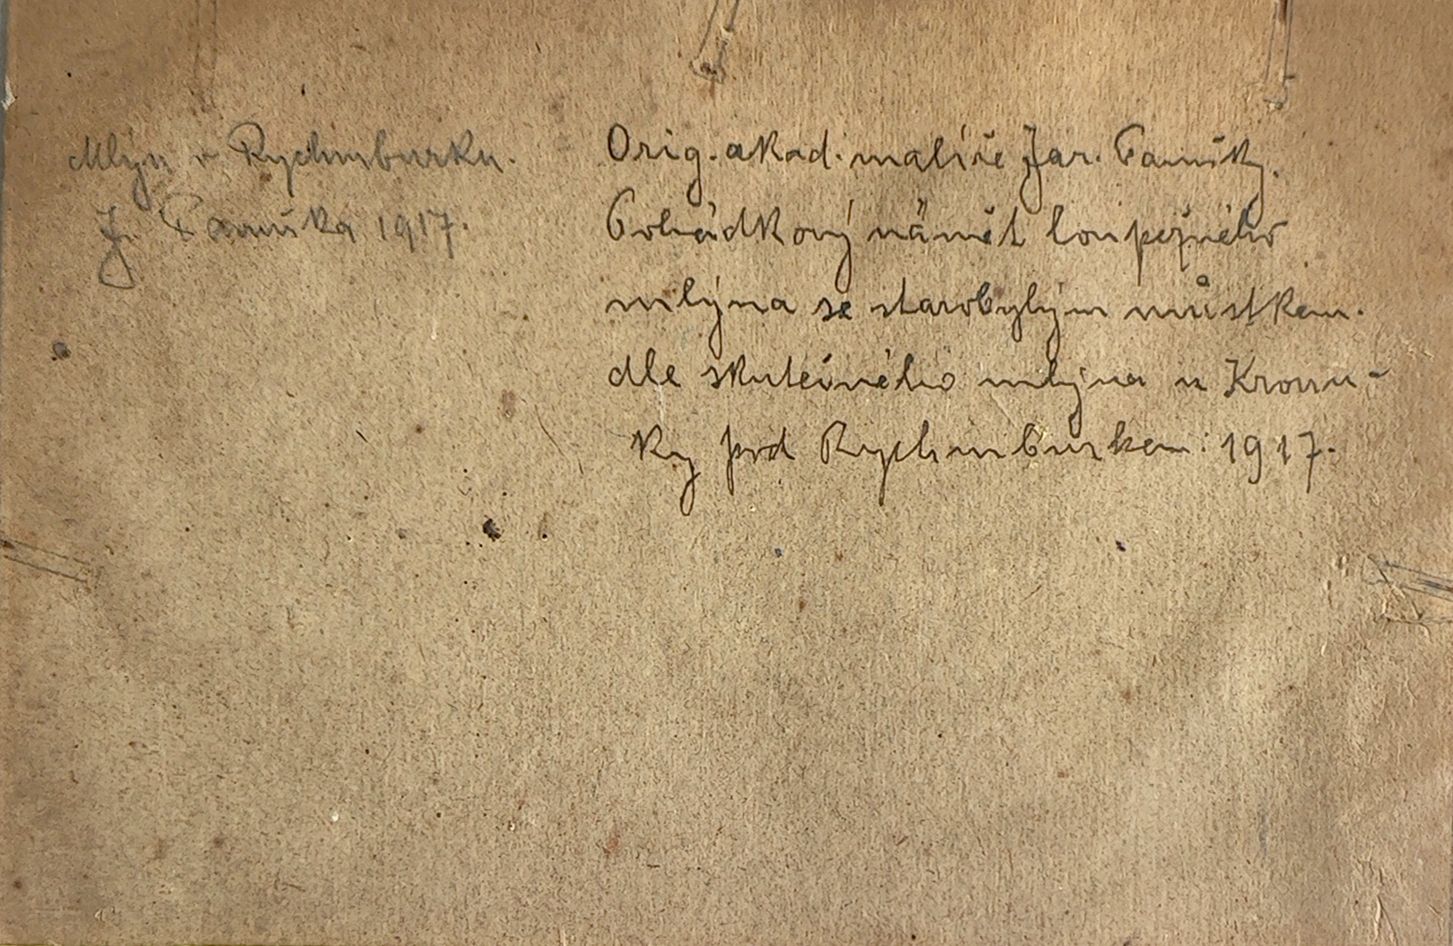 Mlýn v Rychmburku.
J. Panuška 1917.
Orig. akad. malíře Jar. Panušky.
Pohádkový námět loupežného
mlýna se starobylým můstkem.
dle skutečného mlýna u Kroun-
ky pod Rychmburkem. 1917.